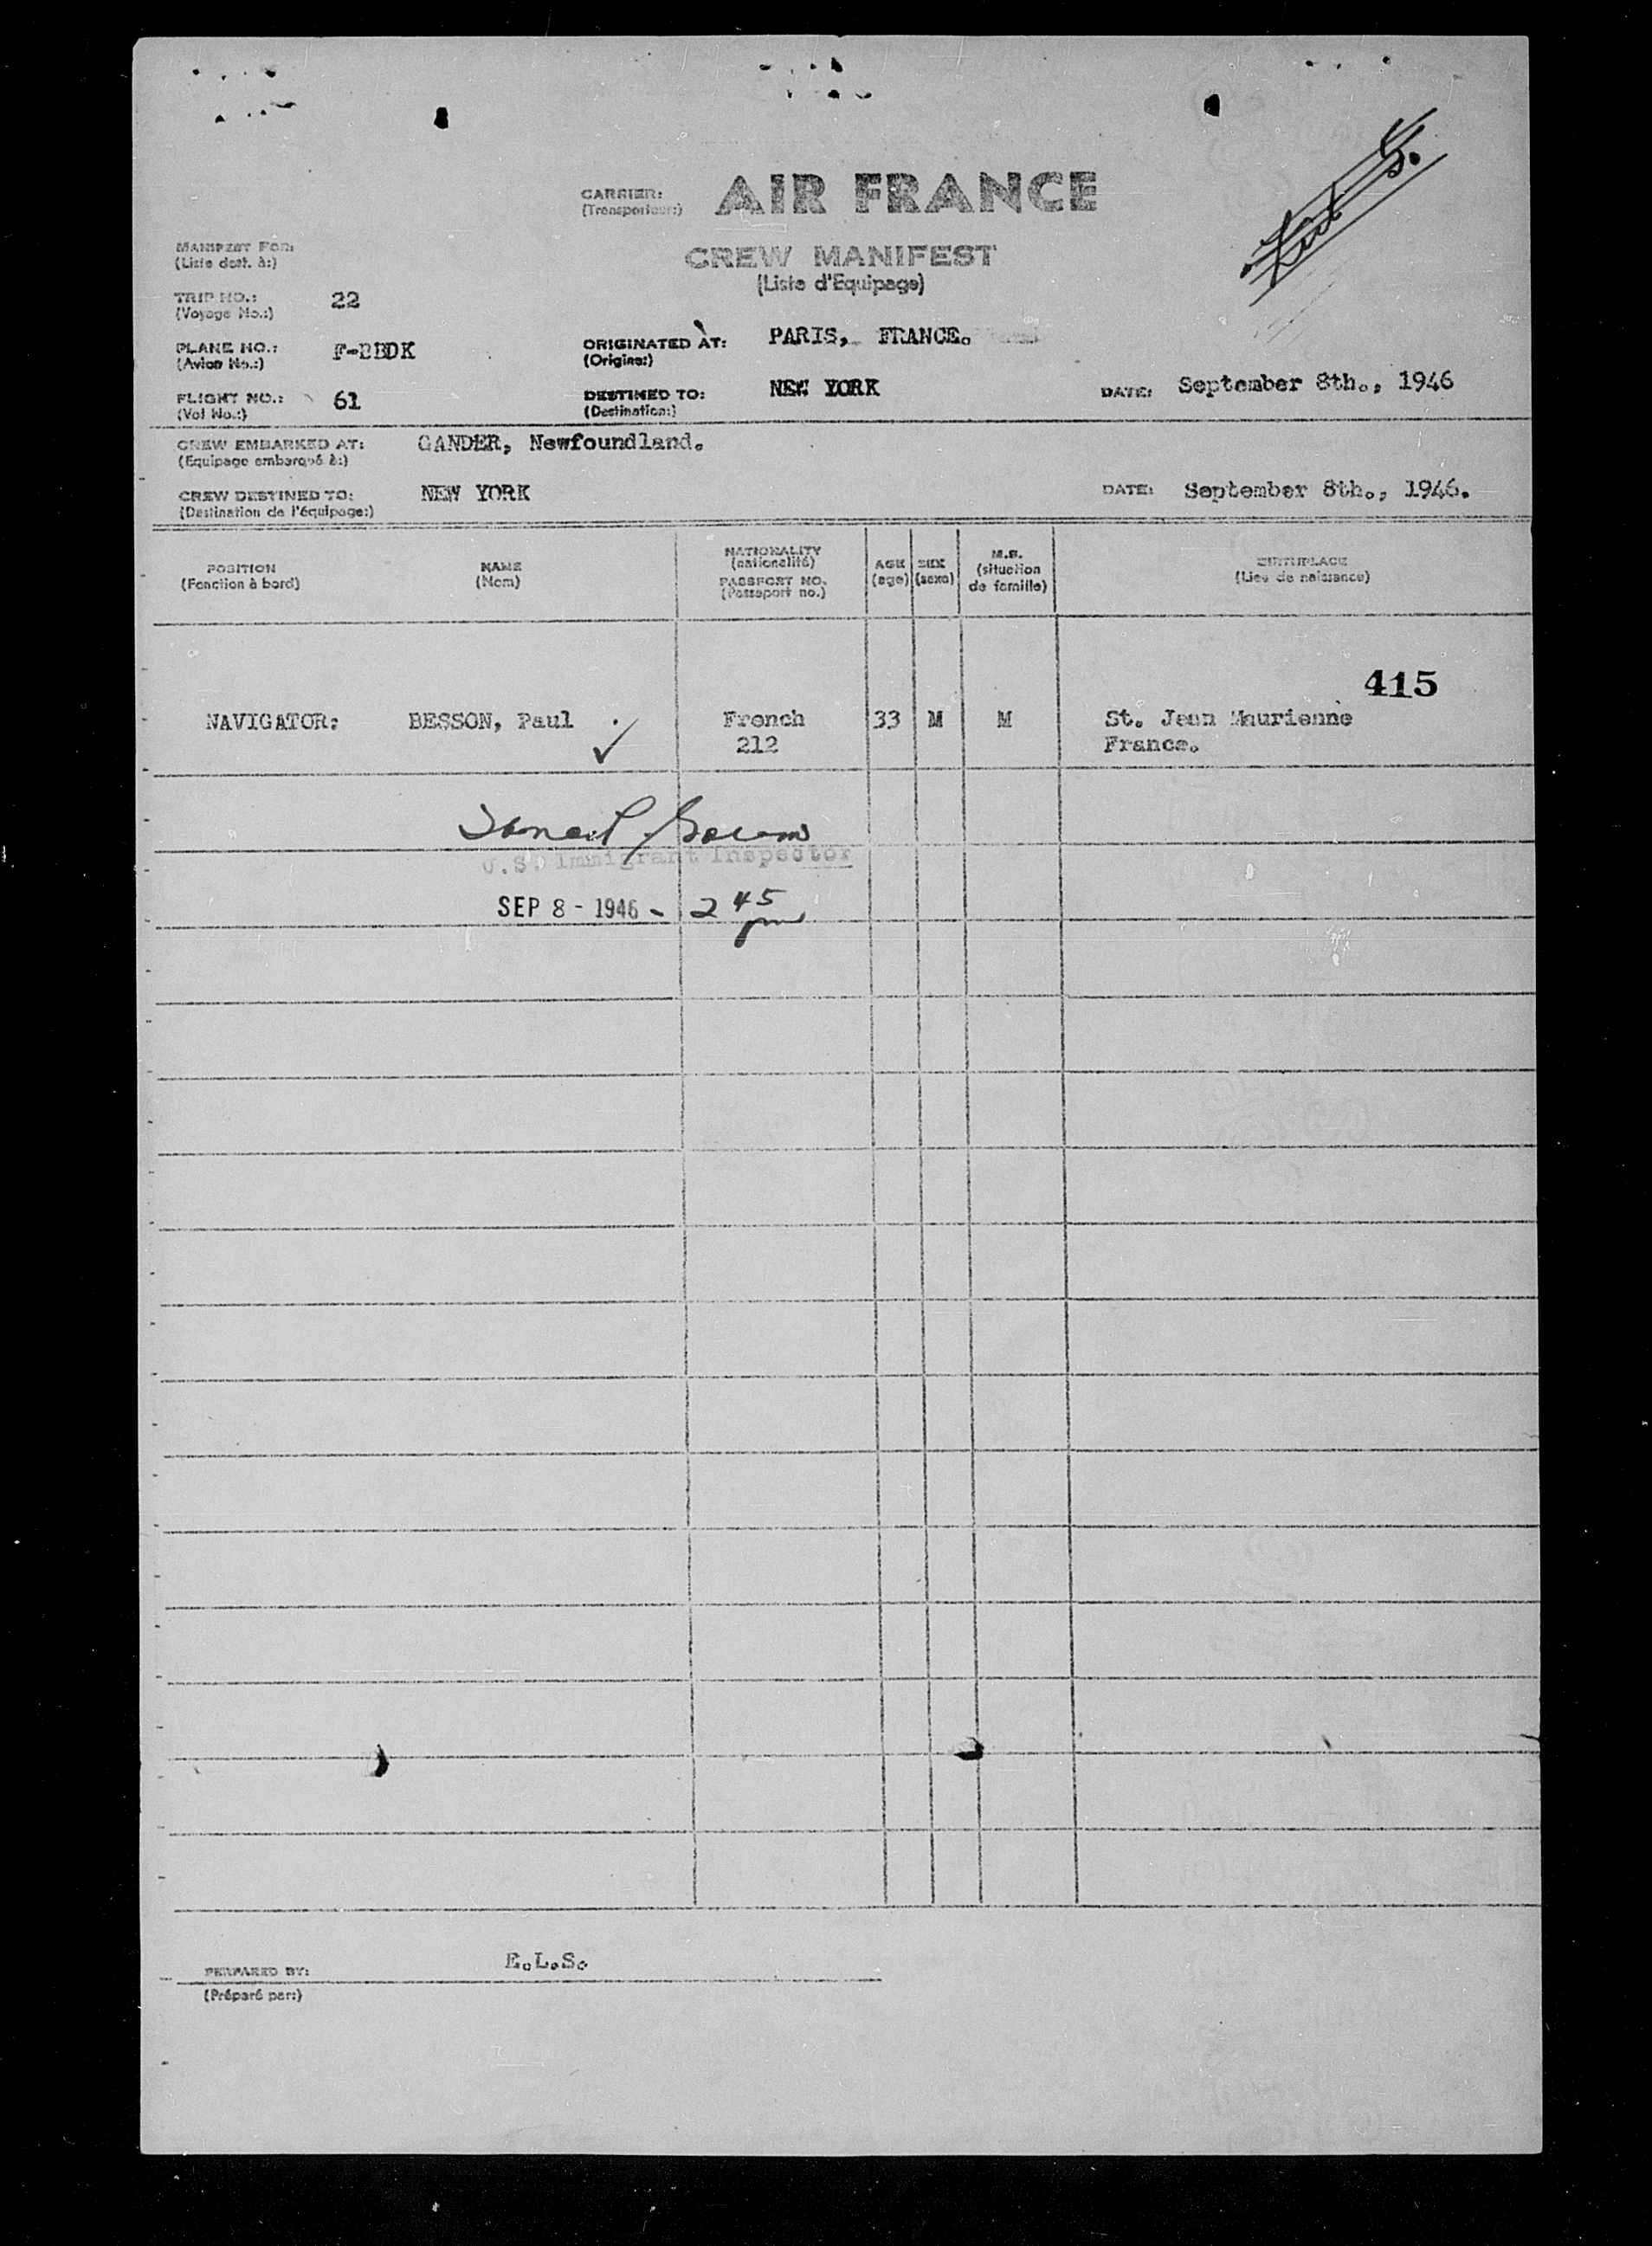 CARRIER: AIR FRANCE
(Transporteur:)
CREW MANIFEST
(Liste d'Equipage)
MANIFEST FOR:
(Liste dest. à:)
TRIP NO.: 22
(Voyage No.:)
PLANE NO.: F-BBDK ORIGINATED AT: PARIS, FRANCE.
(Avion No.:) (Origine:)
FLIGHT NO.: 61 DESTINED TO: NEW YORK DATE: September 8th., 1946
(Vol No.:) (Destination:)
CREW EMBARKED AT: GANDER, Newfoundland.
(Equipage embarqué à:)
CREW DESTINED TO: NEW YORK DATE: September 8th., 1946.
(Destination de l'équipage:)
POSITION NAME NATIONALITY AGE SEX M.S. BIRTHPLACE
(Fonction à bord) (Nom) (nationalité) (age) (sexe) (situation de famille) (Lieu de naissance)
PASSPORT NO.
(Passeport no.)
415
NAVIGATOR: BESSON, Paul French 33 M M St. Jean Maurienne
212 France.
U.S. Immigrant Inspector
SEP 8 - 1946 - 2 45 pm
PERPARED BY: E.L.S.
(Préparé par:)